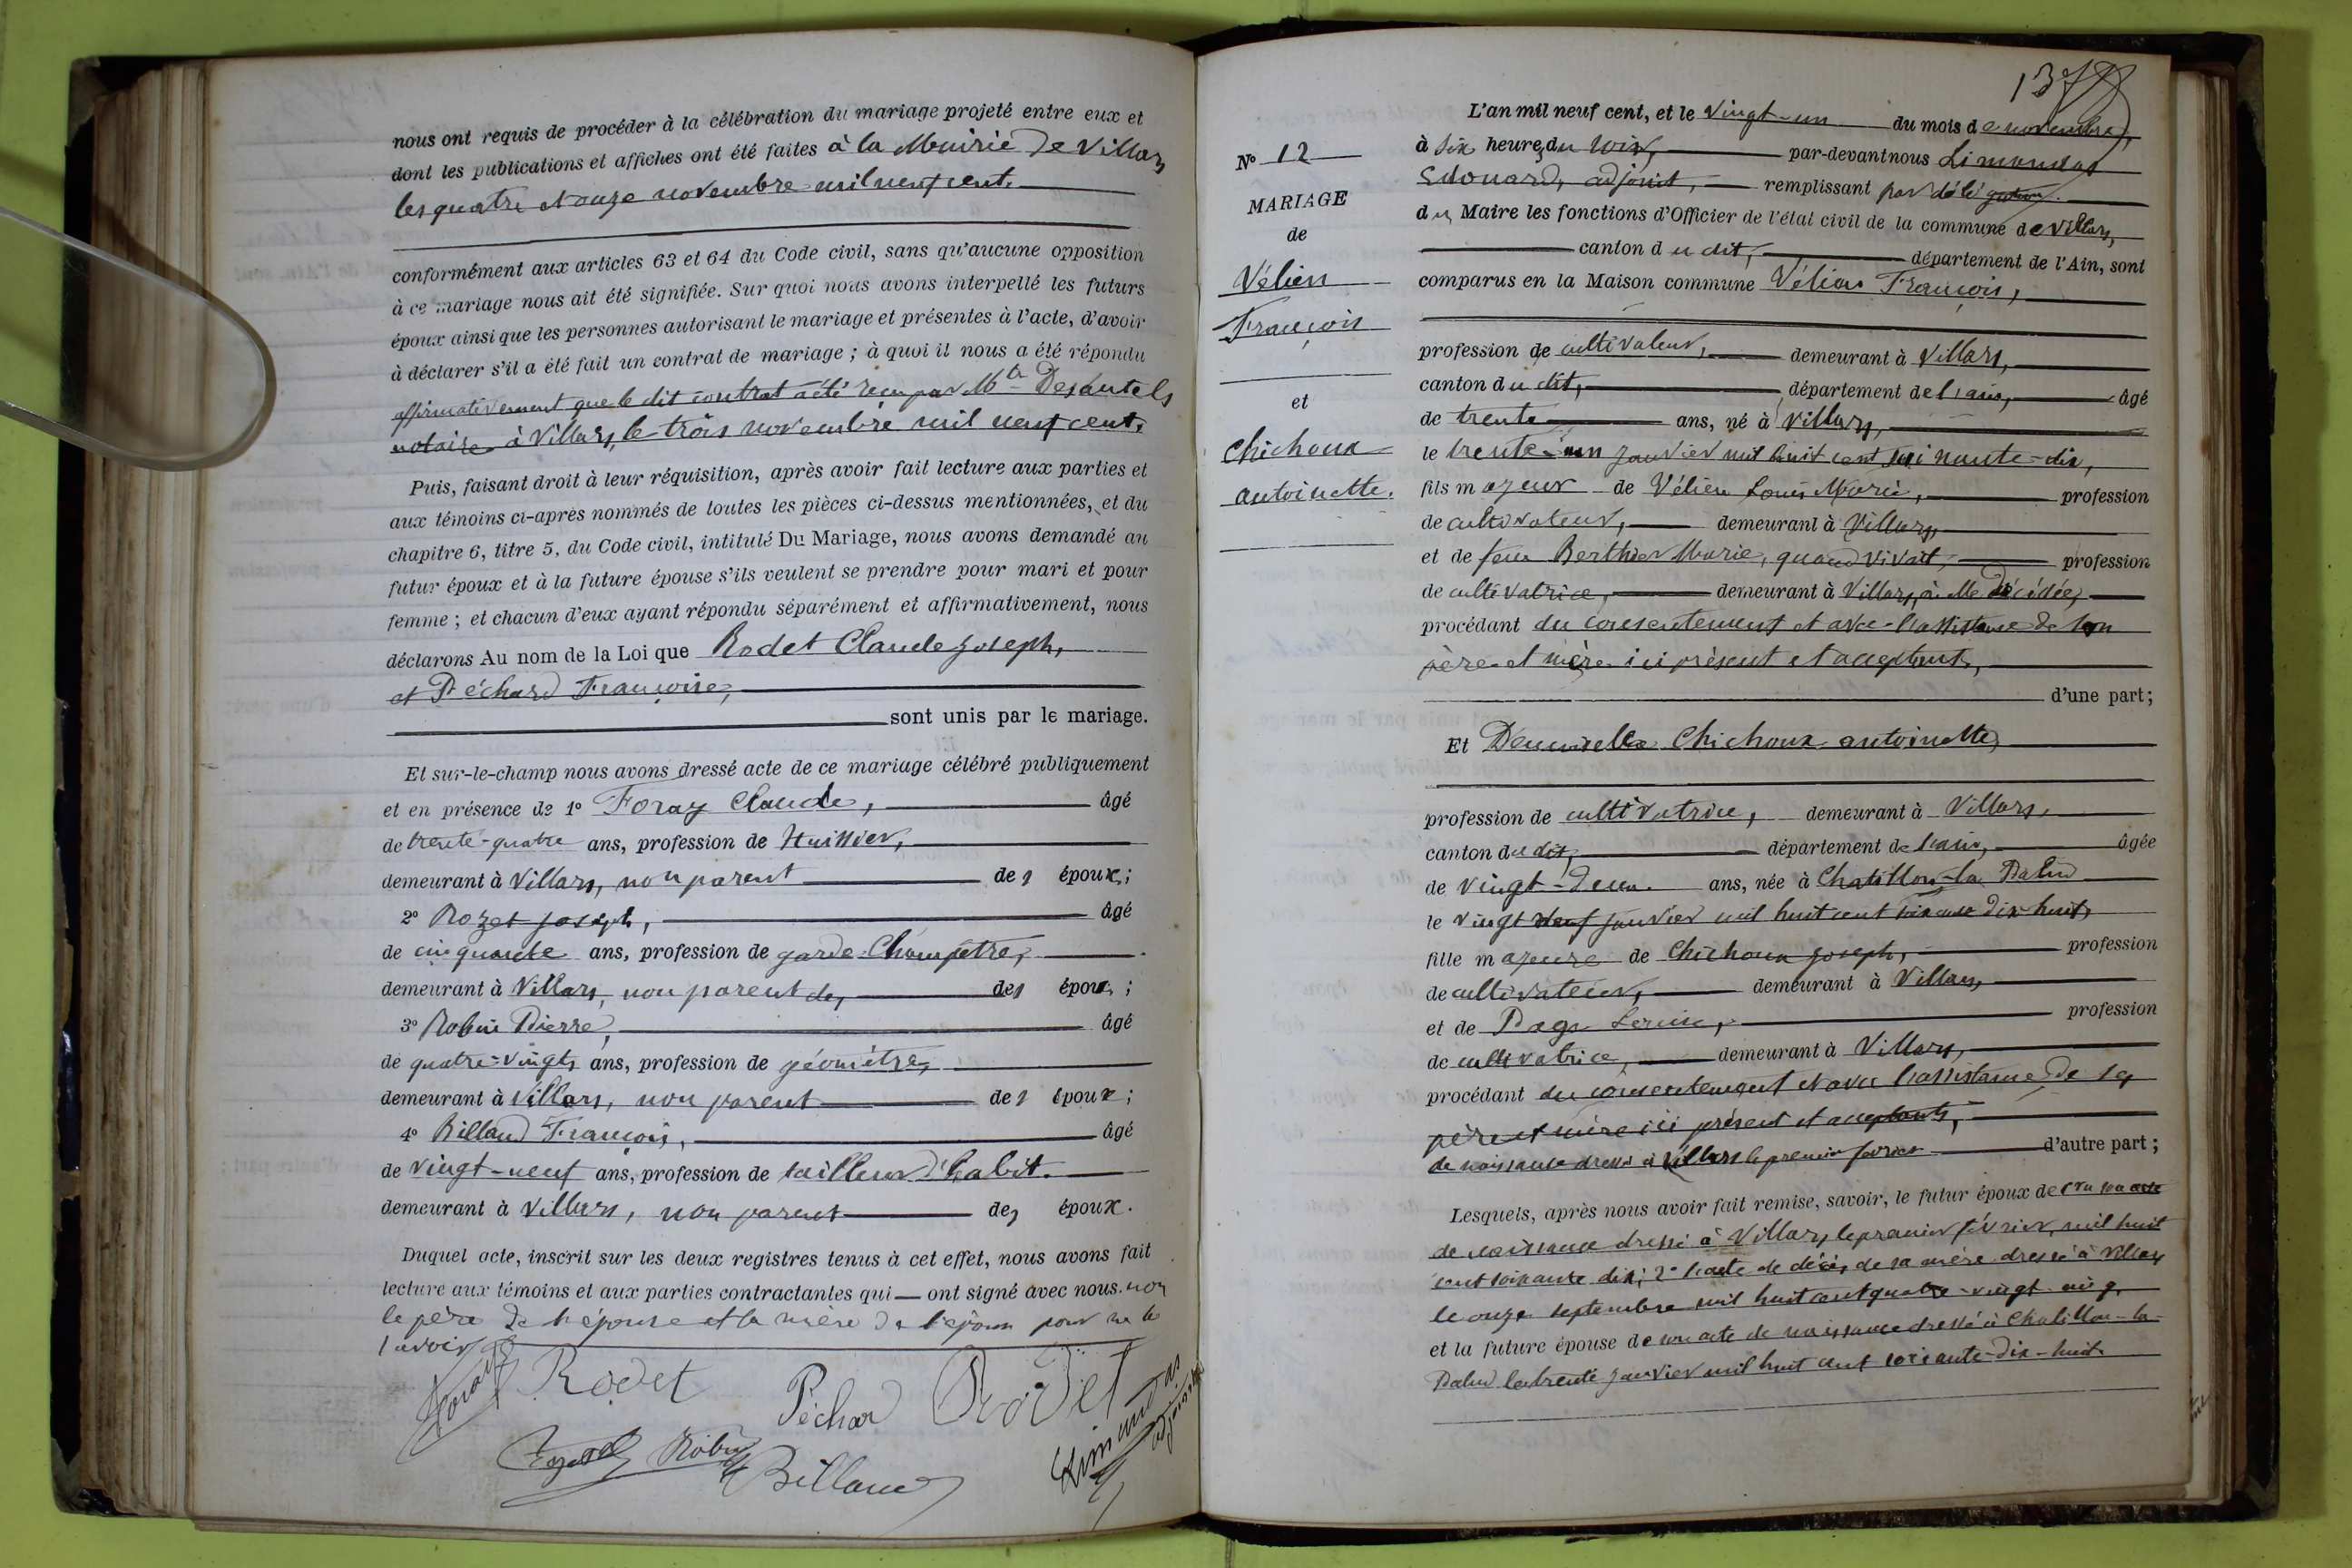 nous ont requis de procéder à la célébration du mariage projeté entre eux et
dont les publications et affiches ont été faites à la Mairie de Villars
les quatre et onze novembre mil neuf cent.
conformément aux articles 63 et 64 du Code civil, sans qu'aucune opposition
à ce mariage nous ait été signifiée. Sur quoi nous avons interpellé les futurs
époux ainsi que les personnes autorisant le mariage et présentes à l'acte, d'avoir
à déclarer s'il a été fait un contrat de mariage ; à quoi il nous a été répondu
affirmativement que le dit contrat a été reçu par Mtr Desautels
notaire à Villars, le trois novembre mil neuf cent.
Puis, faisant droit à leur réquisition, après avoir fait lecture aux parties et
aux témoins ci-après nommés de toutes les pièces ci-dessus mentionnées, et du
chapitre 6, titre 5, du Code civil, intitulé Du Mariage, nous avons demandé au
futur époux et à la future épouse s'ils veulent se prendre pour mari et pour
femme ; et chacun d'eux ayant répondu séparément et affirmativement, nous
déclarons Au nom de la Loi que Rodet Claude Joseph,
et Péchard Françoise,
sont unis par le mariage.
Et sur-le-champ nous avons dressé acte de ce mariage célébré publiquement
et en présence de 1° Foray Claude, âgé
de trente-quatre ans, profession de Huissier,
demeurant à Villars, non parent des époux ;
2° Rozet Joseph, âgé
de cinquante ans, profession de garde-Champêtre,
demeurant à Villars, non parent des des époux ;
3° Robin Pierre, âgé
de quatre-vingts ans, profession de géomètre,
demeurant à Villars, non parent des époux ;
4° Billaud François, âgé
de vingt-neuf ans, profession de tailleur d'habit.
demeurant à Villars, non parent des époux.
Duquel acte, inscrit sur les deux registres tenus à cet effet, nous avons fait
lecture aux témoins et aux parties contractantes qui — ont signé avec nous. non
le père de l'épouse et la mère de l'époux pour ne le
savoir
Foray Rodet Péchard Rodet
Rozet Robin Billaud Limandas adjoint
1378
N° 12
MARIAGE
de
Vélien
François
et
Chichoux
antoinette.
L'an mil neuf cent, et le vingt-un du mois de novembre,
à six heures du soir, par-devant nous Limandas
Edouard, adjoint, remplissant par délégation
du Maire les fonctions d'Officier de l'état civil de la commune de Villars,
canton du dit, département de l'Ain, sont
comparus en la Maison commune Vélien François,
profession de cultivateur, demeurant à Villars,
canton du dit, département de l'ain, âgé
de trente ans, né à Villars,
le trente-un janvier mil huit cent soixante-dix,
fils majeur de Vélien Louis Marie, profession
de cultivateur, demeurant à Villars,
et de feu Berthier Marie, quand vivait, profession
de cultivatrice, demeurant à Villars, où elle décédée,
procédant du consentement et avec l'assistance de son
père et mère ici présent et acceptant,
d'une part;
Et Demoiselle Chichoux antoinette,
profession de cultivatrice, demeurant à Villars,
canton du dit, département de l'ain, âgée
de vingt-deux ans, née à Chatillon-la Palud
le vingt neuf janvier mil huit cent soixante dix huit,
fille majeure de Chichoux Joseph, profession
de cultivateur, demeurant à Villars,
et de Page profession
de cultivatrice, demeurant à Villars,
procédant du consentement et avec l'assistance de ses
père et mère ici présent et acceptants,
de naissance dressé à Villars le premier février d'autre part ;
Lesquels, après nous avoir fait remise, savoir, le futur époux de 1° son acte
de naissance dressé à Villars le premier février, mil huit
cent soixante dix; 2° l'acte de décès de sa mère dressé à Villars
le onze septembre mil huit cent quatre-vingt cinq,
et la future épouse de son acte de naissance dressé à Chatillon-la-
Palud le trente janvier mil huit cent soixante-dix-huit.